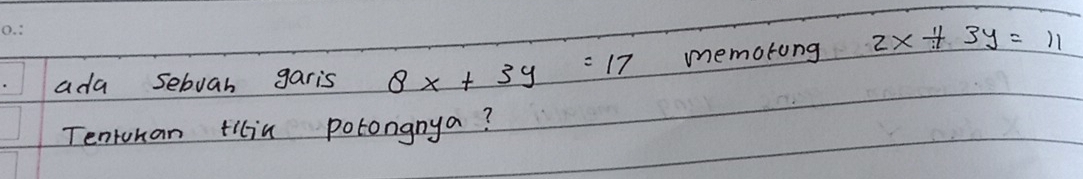 o.:
. ada sebuah garis 8x + 3y = 17 memotong 2x + 3y = 11
Tentukan titik potongnya?